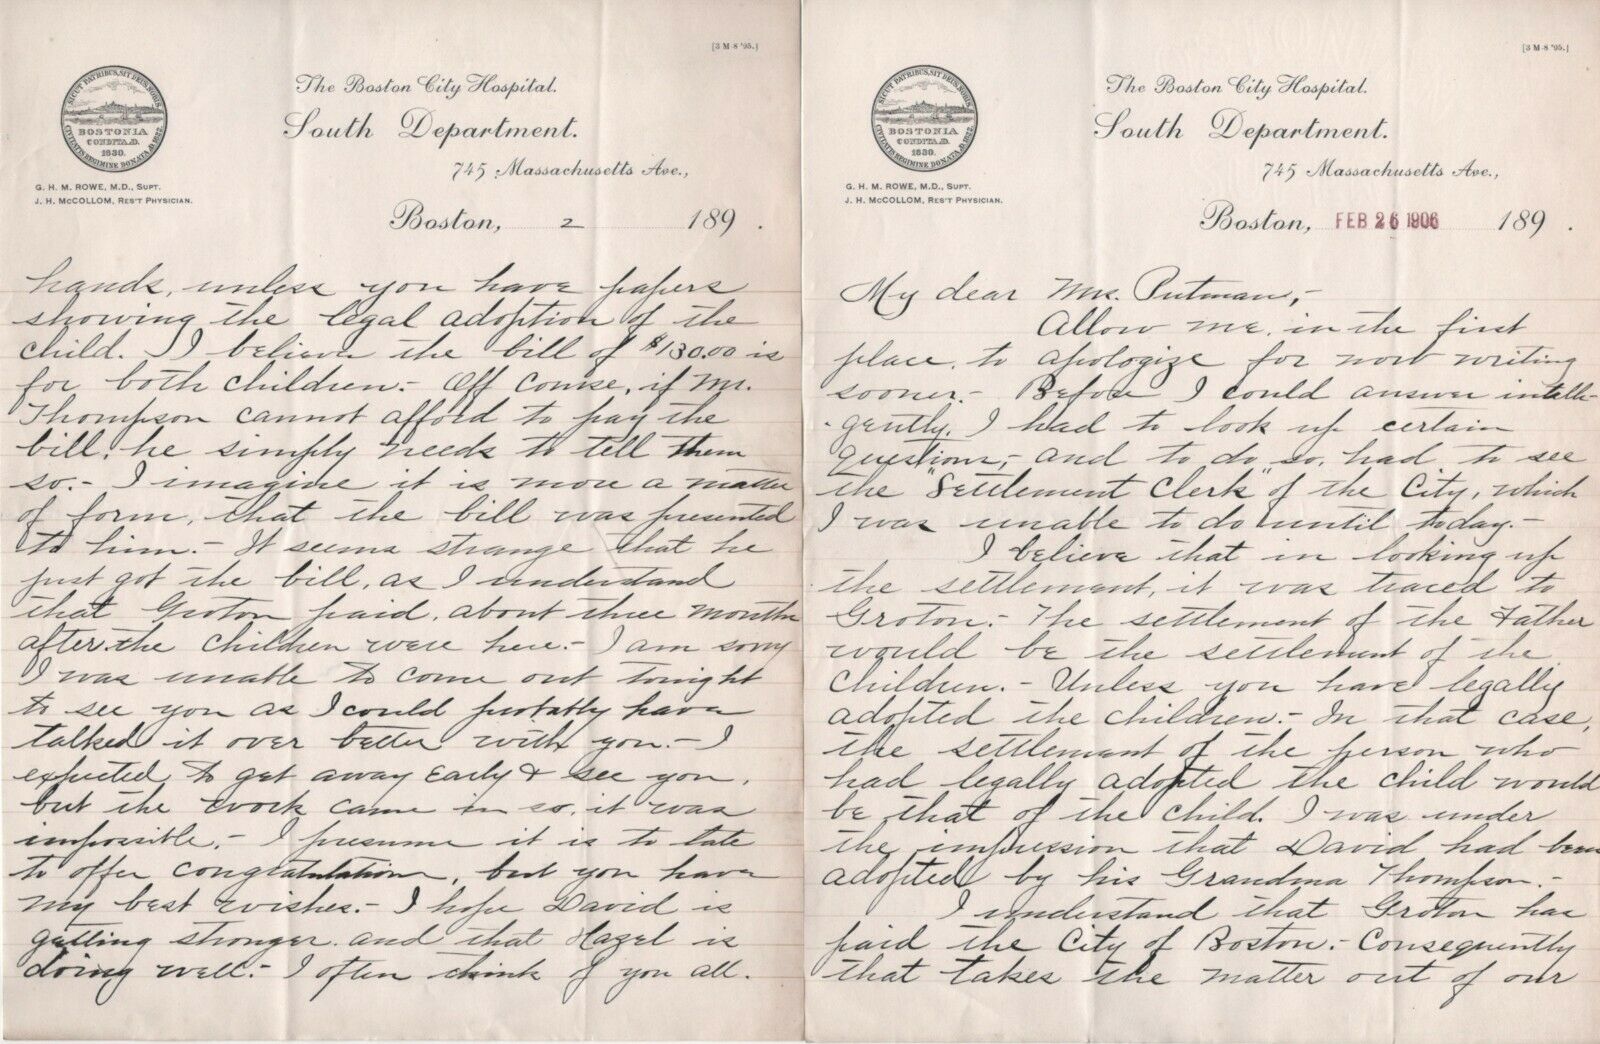 [3 M-8 '95.]
The Boston City Hospital.
South Department.
745 Massachusetts Ave.,
SICUT PATRIBUS, SIT DEUS NOBIS
BOSTONIA
CONDITA A.D.
1630.
CIVITATIS REGIMINE DONATA A.D. 1822.
G. H. M. ROWE, M.D., SUPT.
J. H. McCOLLOM, RES'T PHYSICIAN.
Boston, 2 189 .
hands, unless you have papers
showing the legal adoption of the
child. I believe the bill of $130.00 is
for both children.- Off course, if Mr.
Thompson cannot afford to pay the
bill, he simply needs to tell them
so.- I imagine it is more a matter
of form, that the bill was presented
to him.- It seems strange that he
just got the bill, as I understand
that Groton paid, about three months
after the children were here.- I am sorry
I was unable to come out tonight
to see you as I could probably have
talked it over better with you.- I
expected to get away early & see you,
but the work came in so, it was
impossible.- I presume it is to late
to offer congratulations, but you have
my best wishes.- I hope David is
getting stronger and that Hazel is
doing well.- I often think of you all.
[3 M-8 '95.]
The Boston City Hospital.
South Department.
745 Massachusetts Ave.,
SICUT PATRIBUS, SIT DEUS NOBIS
BOSTONIA
CONDITA A.D.
1630.
CIVITATIS REGIMINE DONATA A.D. 1822.
G. H. M. ROWE, M.D., SUPT.
J. H. McCOLLOM, RES'T PHYSICIAN.
Boston, FEB 26 1906 189 .
My dear Mrs. Putman,-
Allow me, in the first
place, to apologize for not writing
sooner.- Before I could answer intelli-
-gently, I had to look up certain
questions,- and to do so, had to see
the "Settlement Clerk" of the City, which
I was unable to do until today.-
I believe that in looking up
the settlement, it was traced to
Groton.- The settlement of the Father
would be the settlement of the
children.- Unless you have legally
adopted the children.- In that case,
the settlement of the person who
had legally adopted the child would
be that of the child. I was under
the impression that David had been
adopted by his Grandma Thompson.-
I understand that Groton has
paid the City of Boston.- Consequently
that takes the matter out of our